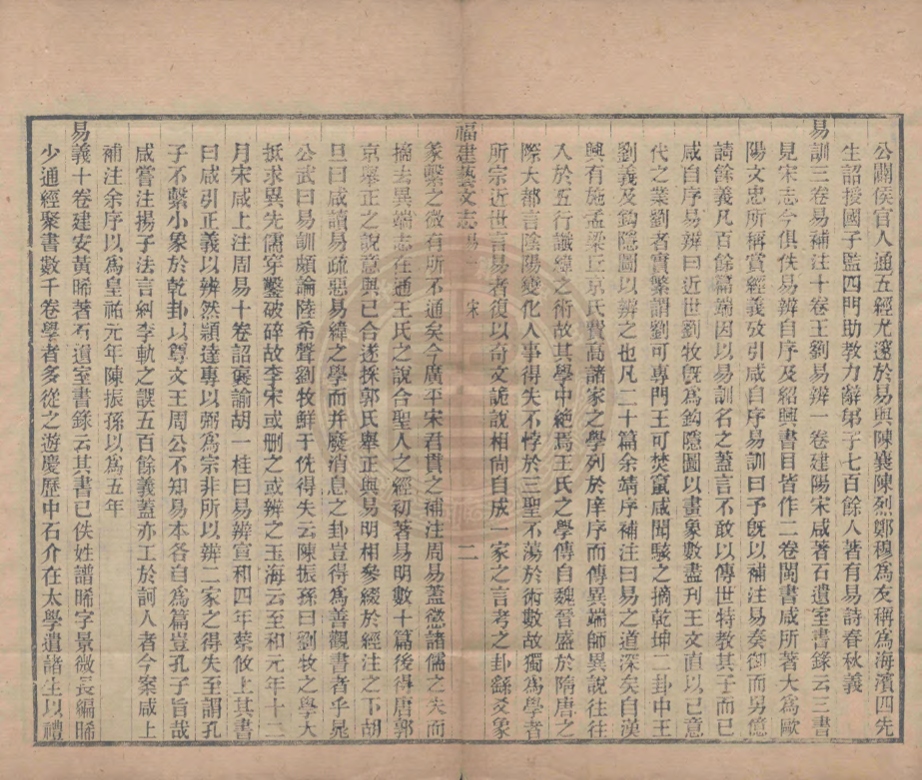 公闢侯官人通五經尤邃於易與陳襄陳烈鄭穆為友稱為海濱四先
生詔授國子監四門助教力辭弟子七百餘人著有易詩春秋義
易訓三卷易補注十卷王劉易辨一卷建陽宋咸著石遺室書錄云三書
見宋志今俱佚易辨自序及紹興書目皆作二卷閩書咸所著大為歐
陽文忠所稱賞經義攷引咸自序易訓曰予旣以補注易奏御而男億
請餘義凡百餘篇端因以易訓名之蓋言不敢以傳世特教其子而已
咸自序易辨曰近世劉牧旣為鉤隱圖以畫象數盡刊王文直以已意
代之業劉者實繁謂劉可專門王可焚竄咸聞駭之摘乾坤二卦中王
劉義及鉤隱圖以辨之也凡二十篇余靖序補注曰易之道深矣自漢
興有施孟梁丘京氏費高諸家之學列於庠序而傳異端師異說往往
入於五行讖緯之術故其學中絕焉王氏之學傳自魏晉盛於隋唐之
際大都言陰陽變化人事得失不悖於三聖不蕩於術數故獨為學者
所宗近世言易者復以奇文詭說相尚自成一家之言考之卦繇爻象
福建藝文志 易 宋 二
彖繫之微有所不通矣今廣平宋君貫之補注周易蓋懲諸儒之失而
摘去異端志在通王氏之說合聖人之經初著易明數十篇後得唐郭
京舉正之說意與已合遂採郭氏舉正與易明相參綴於經注之下胡
旦曰咸讀易疏惡易緯之學而并廢消息之卦豈得為善觀書者乎晁
公武曰易訓頗論陸希聲劉牧鮮于侁得失云陳振孫曰劉牧之學大
抵求異先儒穿鑿破碎故李宋或刪之或辨之玉海云至和元年十二
月宋咸上注周易十卷詔褒諭胡一桂曰易辨宣和四年蔡攸上其書
曰咸引正義以辨然頴達專以弼為宗非所以辨二家之得失至謂孔
子不繫小象於乾卦以尊文王周公不知易本各自為篇豈孔子旨哉
咸嘗注揚子法言糾李軌之誤五百餘義蓋亦工於訶人者今案咸上
補注余序以為皇祐元年陳振孫以為五年
易義十卷建安黃晞著石遺室書錄云其書已佚姓譜晞字景微長編晞
少通經聚書數千卷學者多從之遊慶歷中石介在太學遺諸生以禮